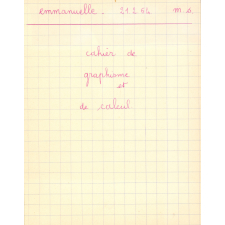 emmanuelle. 21.1.64 m.s.
cahier de
graphisme
et
de calcul